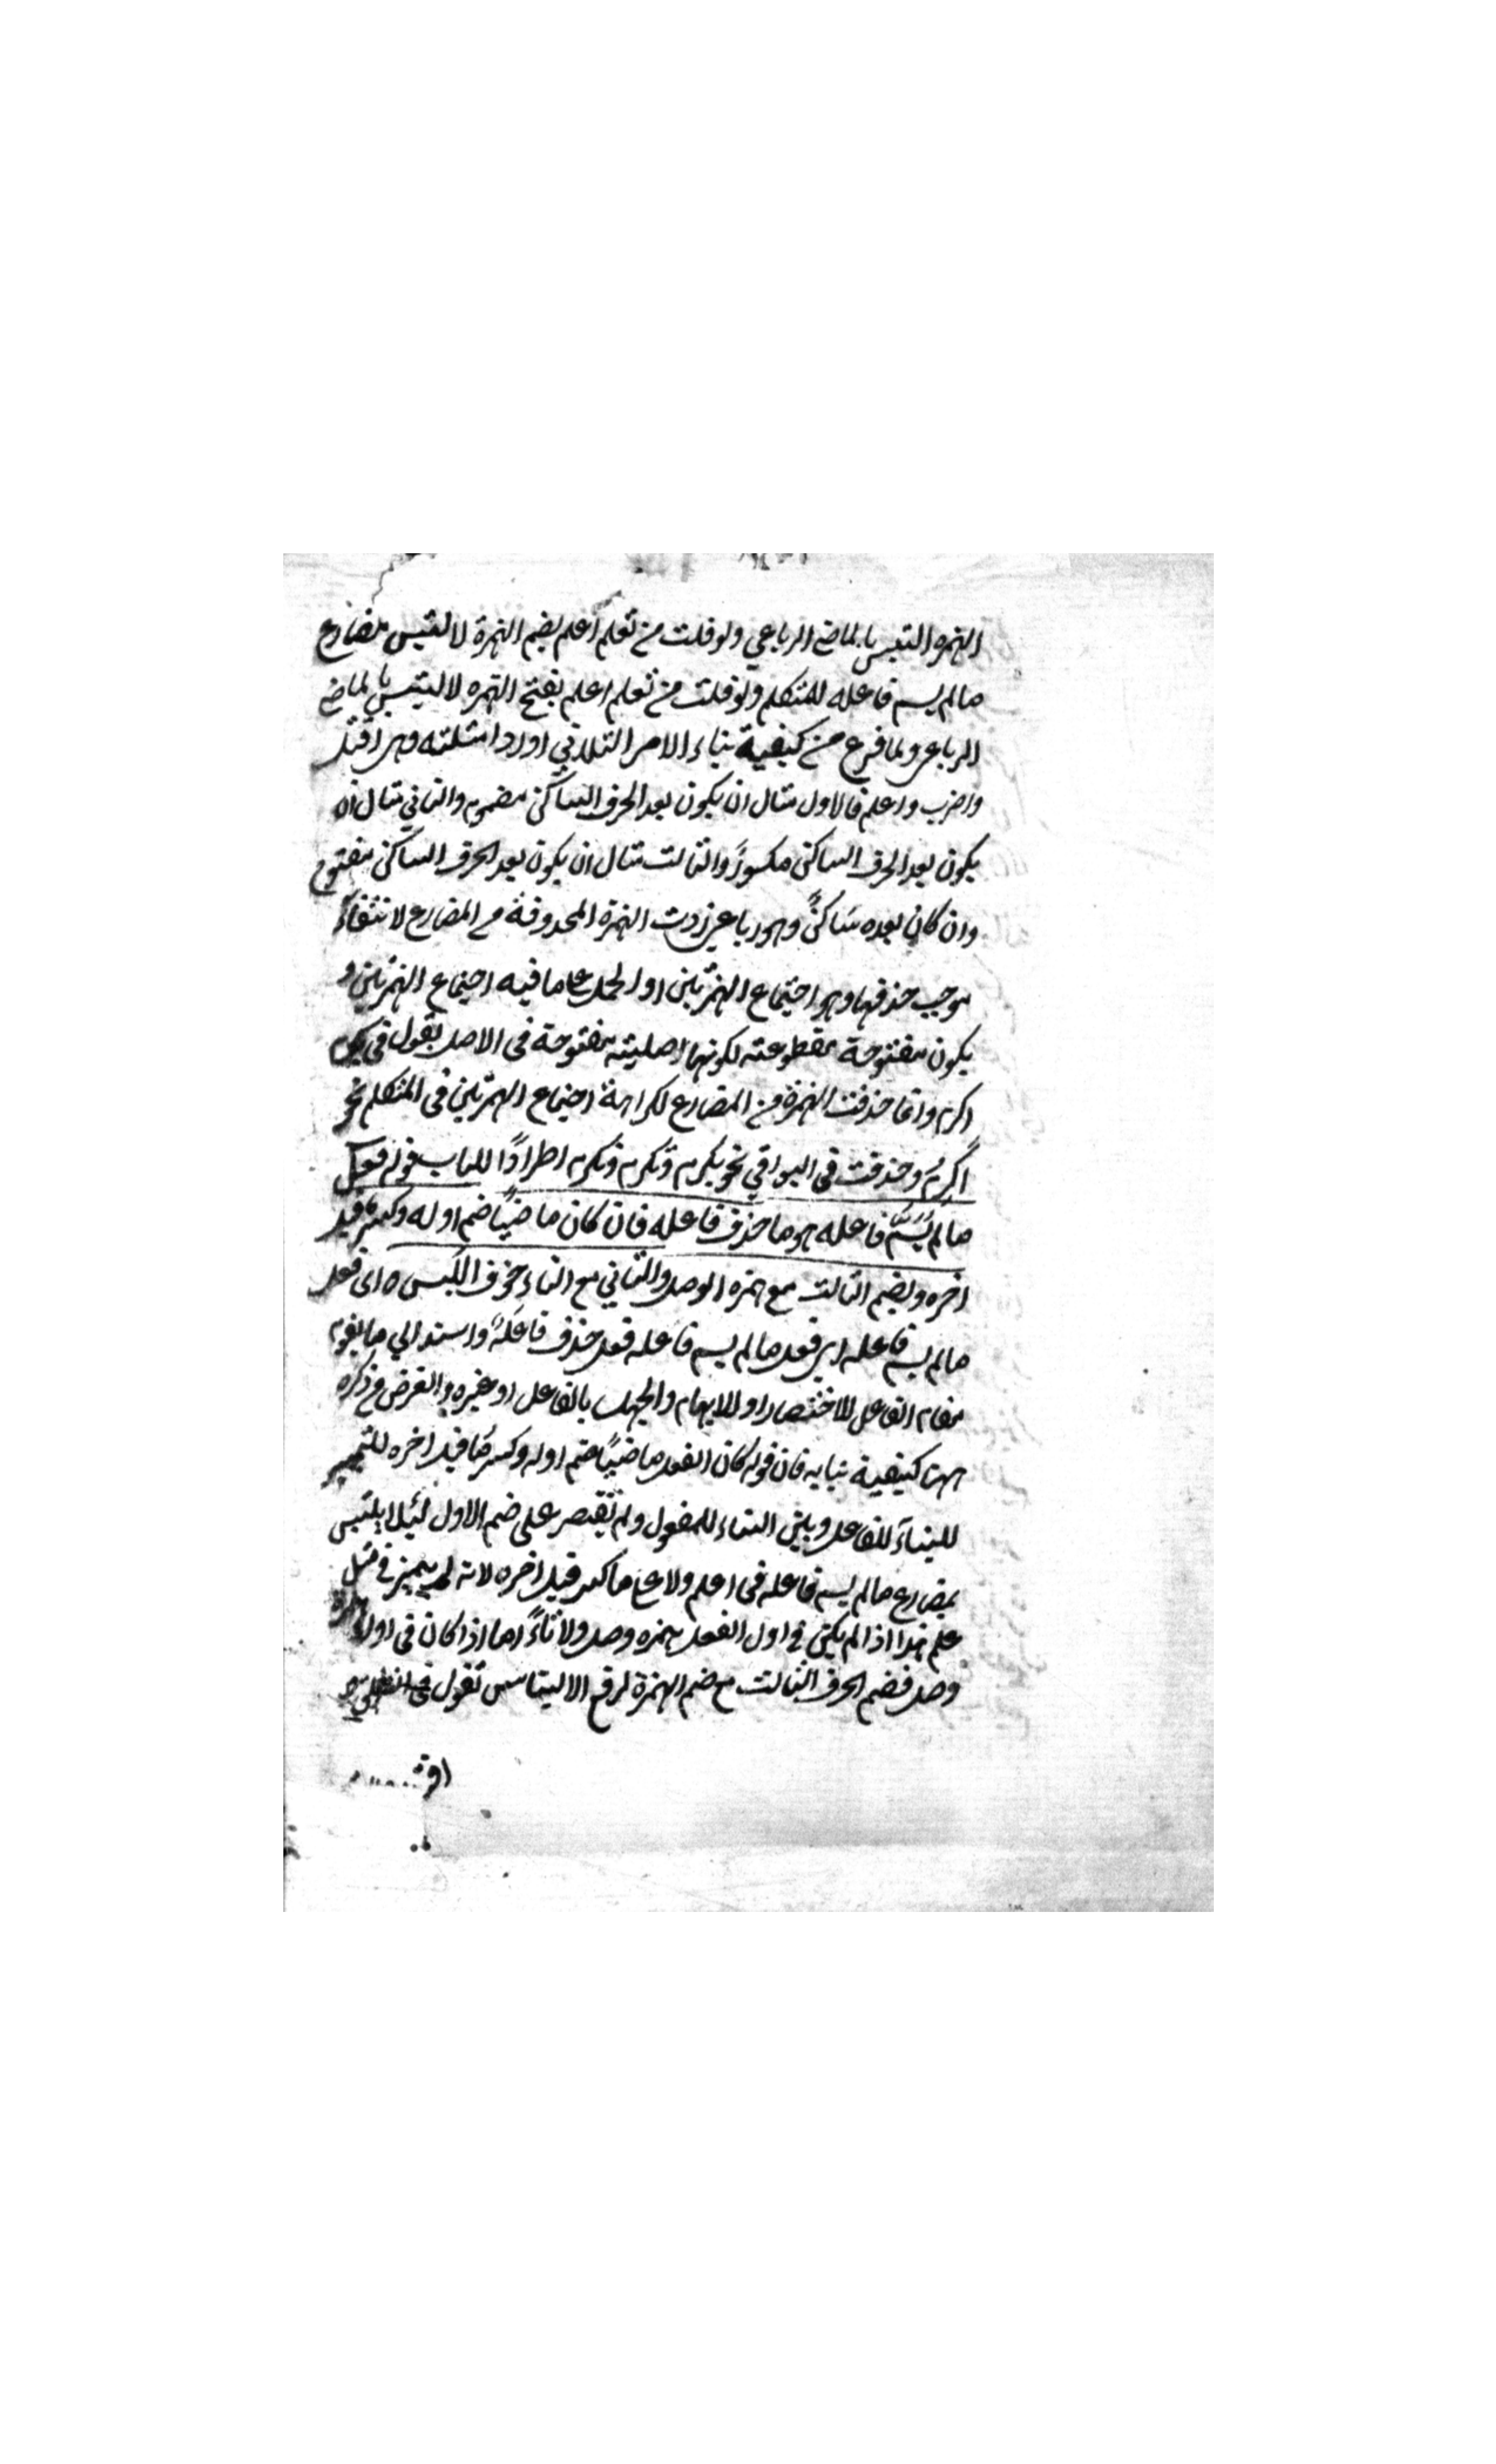 الهمزه التبس بالماضي الرباعي ولو قلت من تعلم أعلم بضم الهمزة لالتبس بمضارع
مالم يسم فاعله للمتكلم ولو قلت من تعلم اعلم بفتح الهمزه لالتبس بالماضي
الرباعي ولما فرغ من كيفية بناء الامر الثلاثي اورد امثلته وهي اقتل
واضرب واعلم فالاول مثال ان يكون بعد الحرف الساكن مضموم والثاني مثال ان
يكون بعد الحرف الساكن مكسورً والثالث مثال ان يكون بعد الحرف الساكن مفتوح
وان كان بعده ساكنً وهو رباعي زدت الهمزة المحذوفة من المضارع لانتفاء
موجب حذفها وهو اجتماع الهمزتين او الحمل على ما فيه اجتماع الهمزتين و
يكون مفتوحة مقطوعته لكونها اصليته مفتوحة في الاصل تقول في يكرم
اكرم وانما حذفت الهمزة من المضارع لكراهة اجتماع الهمزتين في المتكلم نحو
أكرم وحذفت في البواقي نحو يكرم وتكرم ونكرم اطرادًا للباب قوله فعل
مالم يُسَمَّ فاعله هو ما حذف فاعله فان كان ماضيًا ضم اوله وكسر ما قبل
اخره ويضم الثالث مع همزه الوصل والثاني مع التاء خوف اللبس ه اى فعل
مالم يسم فاعله اي فعل مالم يسم فاعله فعل حذف فاعله واسند الي ما يقوم
مقام الفاعل للاختصار او للابهام والجهل بالفاعل او غيره والغرض من ذكره
ههنا كيفية بنايه فان قوله كان الفعل ماضيًا ضم اوله وكسر ما قبل اخره للتمييز
للبناء للفاعل وبين البناء للمفعول ولم تقتصر على ضم الاول لئلا يلتبس
بمضارع مالم يسم فاعله في اعلم ولا على ما كسر قبل اخره لانه لم يتميز في مثل
علم هذا اذا لم يكن في اول الفعل همزه وصل ولا تاءً اما اذا كان في اوله همزة
وصل فضم الحرف الثالث مع ضم الهمزة لرفع الالتباس تقول في